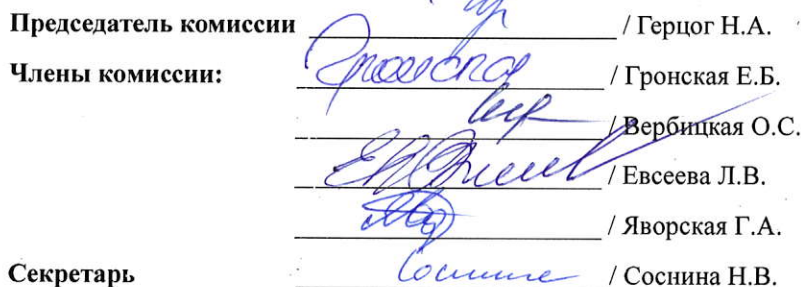 Председатель комиссии / Герцог Н.А.
Члены комиссии: / Гронская Е.Б.
/ Вербицкая О.С.
/ Евсеева Л.В.
/ Яворская Г.А.
Секретарь / Соснина Н.В.